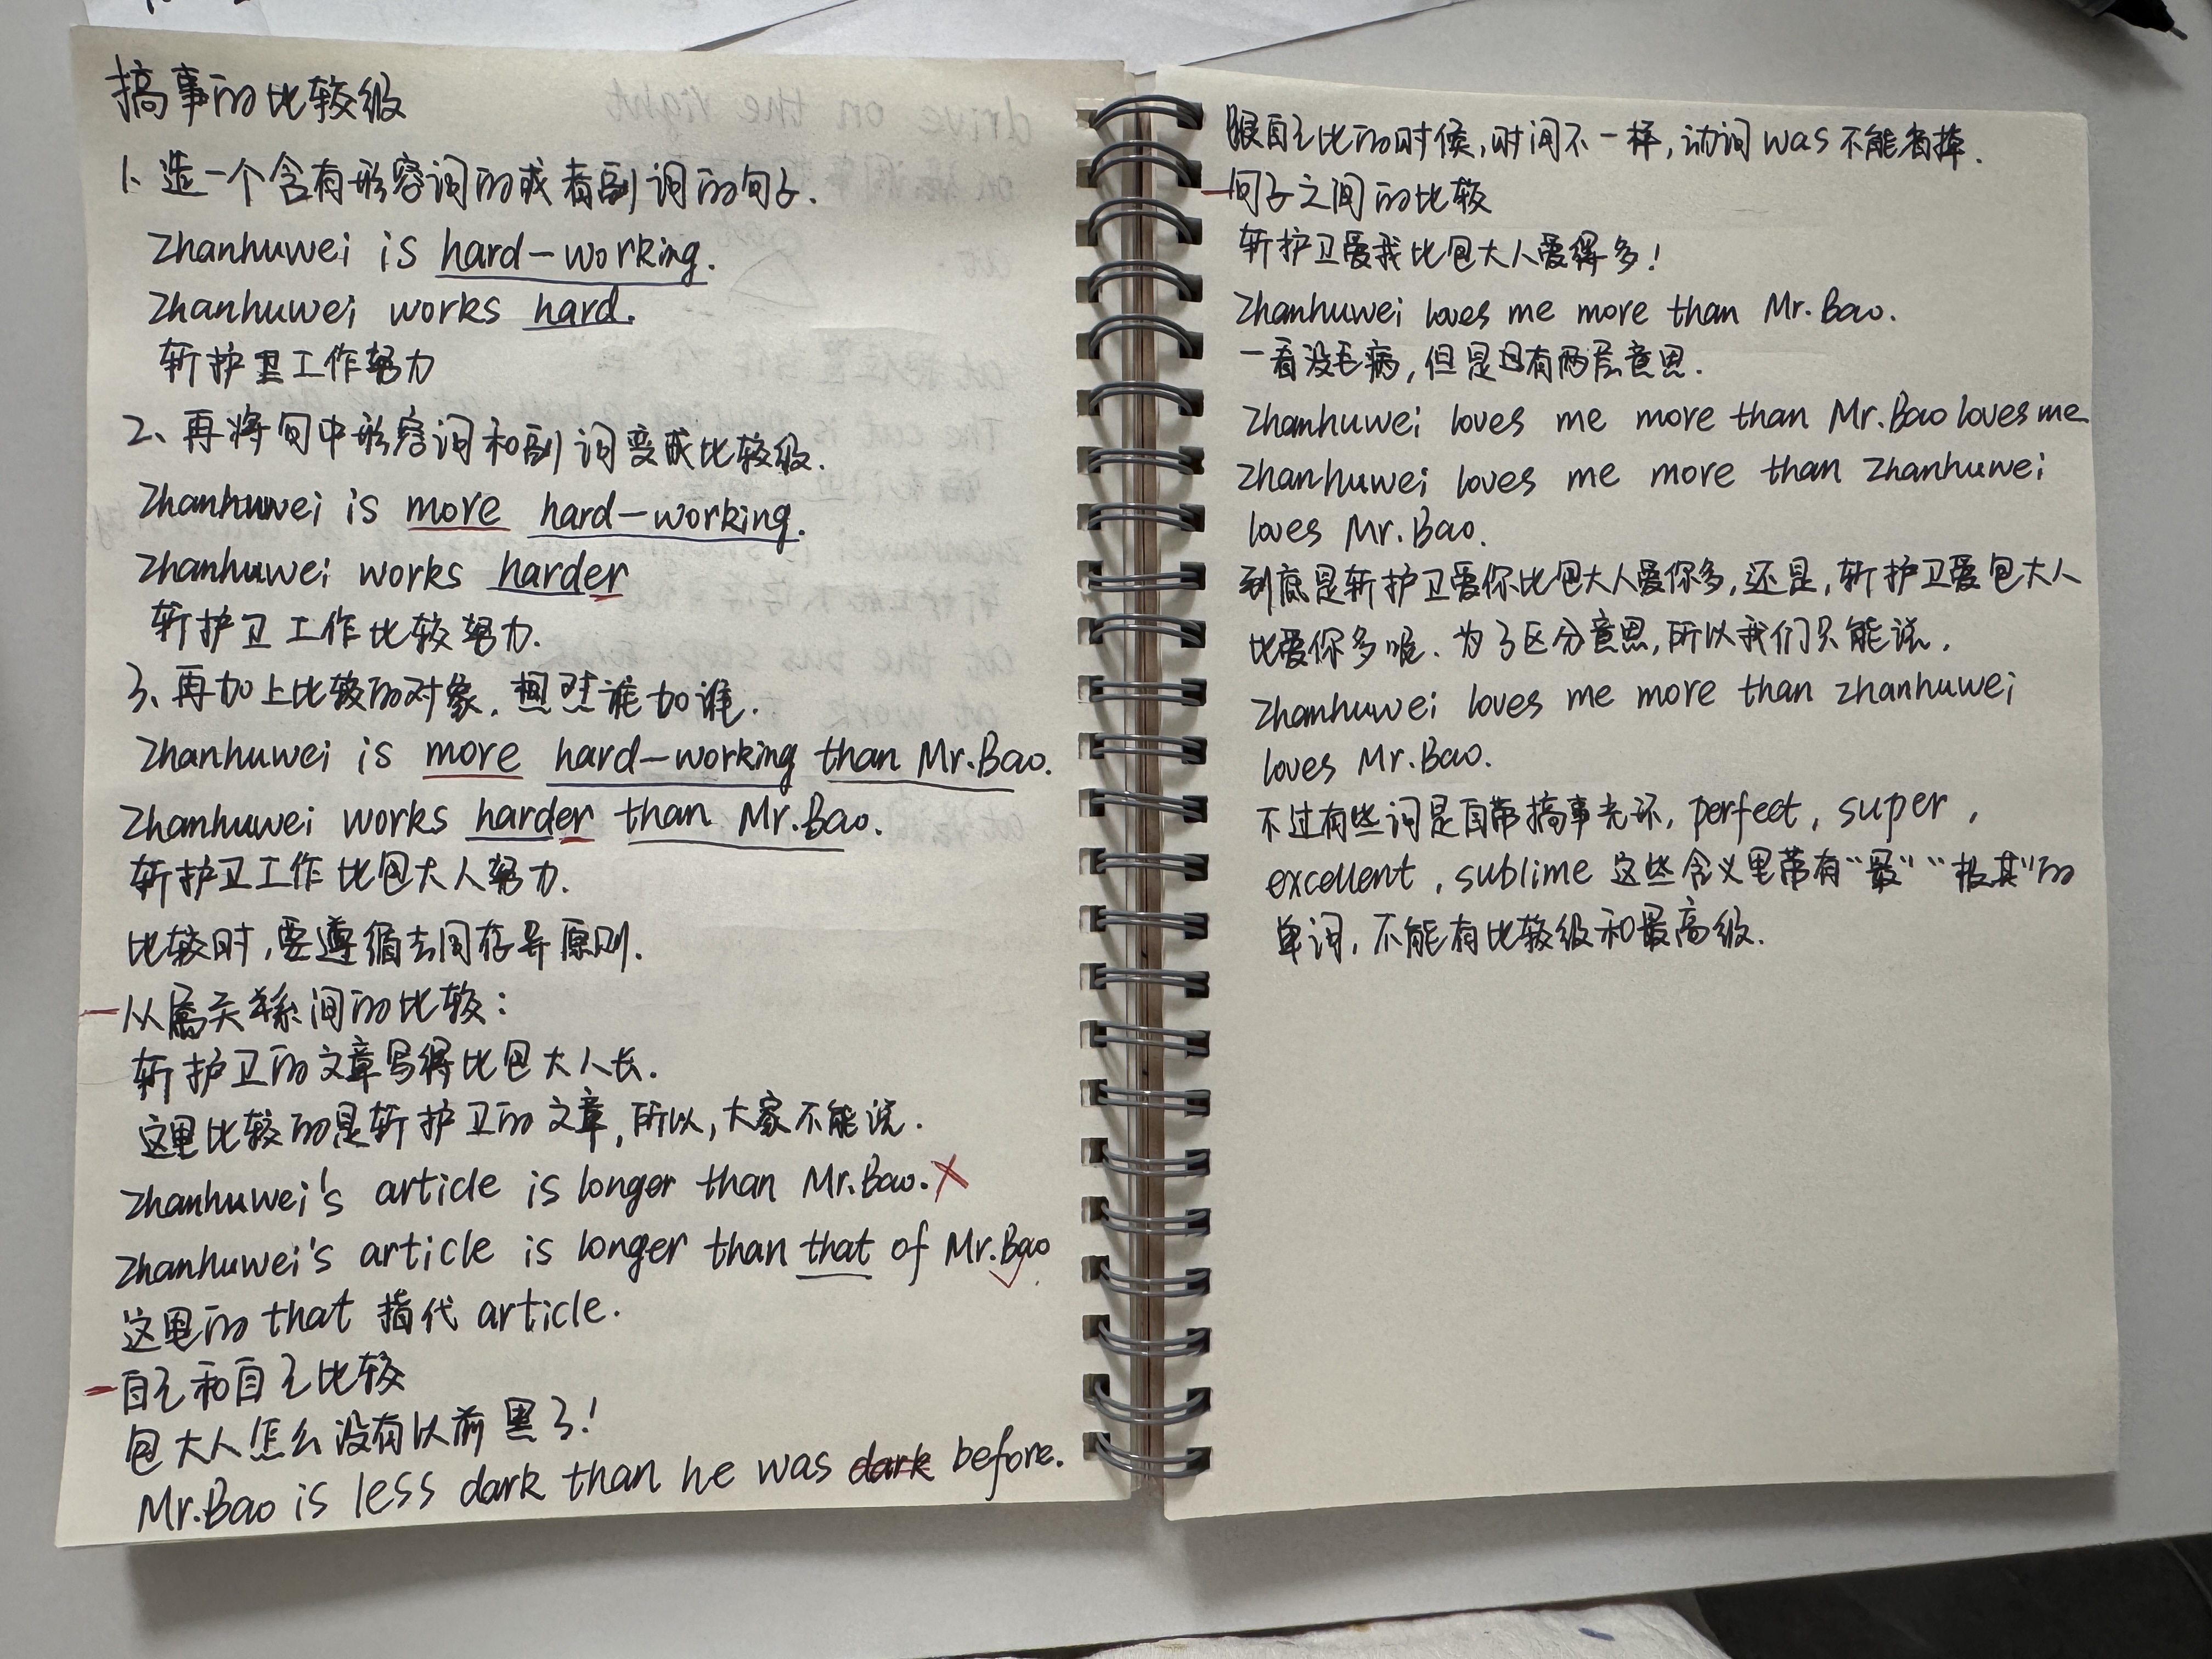 搞事的比较级
1、造一个含有形容词的或者副词的句子.
Zhanhuwei is hard-working.
Zhanhuwei works hard.
斩护卫工作努力
2、再将句中形容词和副词变成比较级.
Zhanhuwei is more hard-working.
Zhanhuwei works harder
斩护卫工作比较努力.
3、再加上比较的对象.想怼谁加谁.
Zhanhuwei is more hard-working than Mr.Bao.
Zhanhuwei works harder than Mr.Bao.
斩护卫工作比包大人努力.
比较时,要遵循去同存异原则.
-从属关系间的比较:
斩护卫的文章写得比包大人长.
这里比较的是斩护卫的文章,所以,大家不能说.
Zhanhuwei's article is longer than Mr.Bao.×
Zhanhuwei's article is longer than that of Mr.Bao.✓
这里的that指代article.
-自己和自己比较
包大人怎么没有以前黑了!
Mr.Bao is less dark than he was dark before.
跟自己比的时候,时间不一样,动词was不能省掉.
-句子之间的比较
斩护卫爱我比包大人爱得多!
Zhanhuwei loves me more than Mr.Bao.
一看没毛病,但是又有两层意思.
Zhanhuwei loves me more than Mr.Bao loves me
Zhanhuwei loves me more than Zhanhuwei
loves Mr.Bao.
到底是斩护卫爱你比包大人爱你多,还是,斩护卫爱包大人
比爱你多呢.为了区分意思,所以我们只能说.
Zhanhuwei loves me more than Zhanhuwei
loves Mr.Bao.
不过有些词是自带搞事光环,perfect,super,
excellent,sublime这些含义里带有"最""极其"的
单词,不能有比较级和最高级.